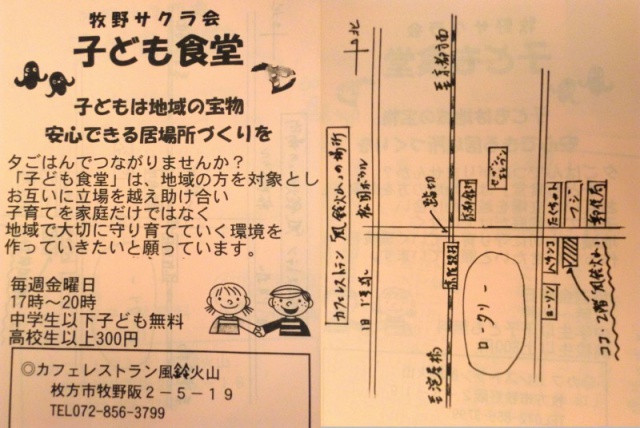 牧野サクラ会
子ども食堂
子どもは地域の宝物
安心できる居場所づくりを
夕ごはんでつながりませんか？
「子ども食堂」は、地域の方を対象とし
お互いに立場を越え助け合い
子育てを家庭だけではなく
地域で大切に守り育てていく環境を
作っていきたいと願っています。
毎週金曜日
17時～20時
中学生以下子ども無料
高校生以上300円
◎カフェレストラン風鈴火山
枚方市牧野阪２－５－１９
TEL072-856-3799
北
至京都方面
カフェレストラン風鈴火山の場所
旧1号線
踏切
セブンイレブン
郵便局
フジ
ローソン
ロータリー
至淀屋橋
ココ・2階風鈴火山